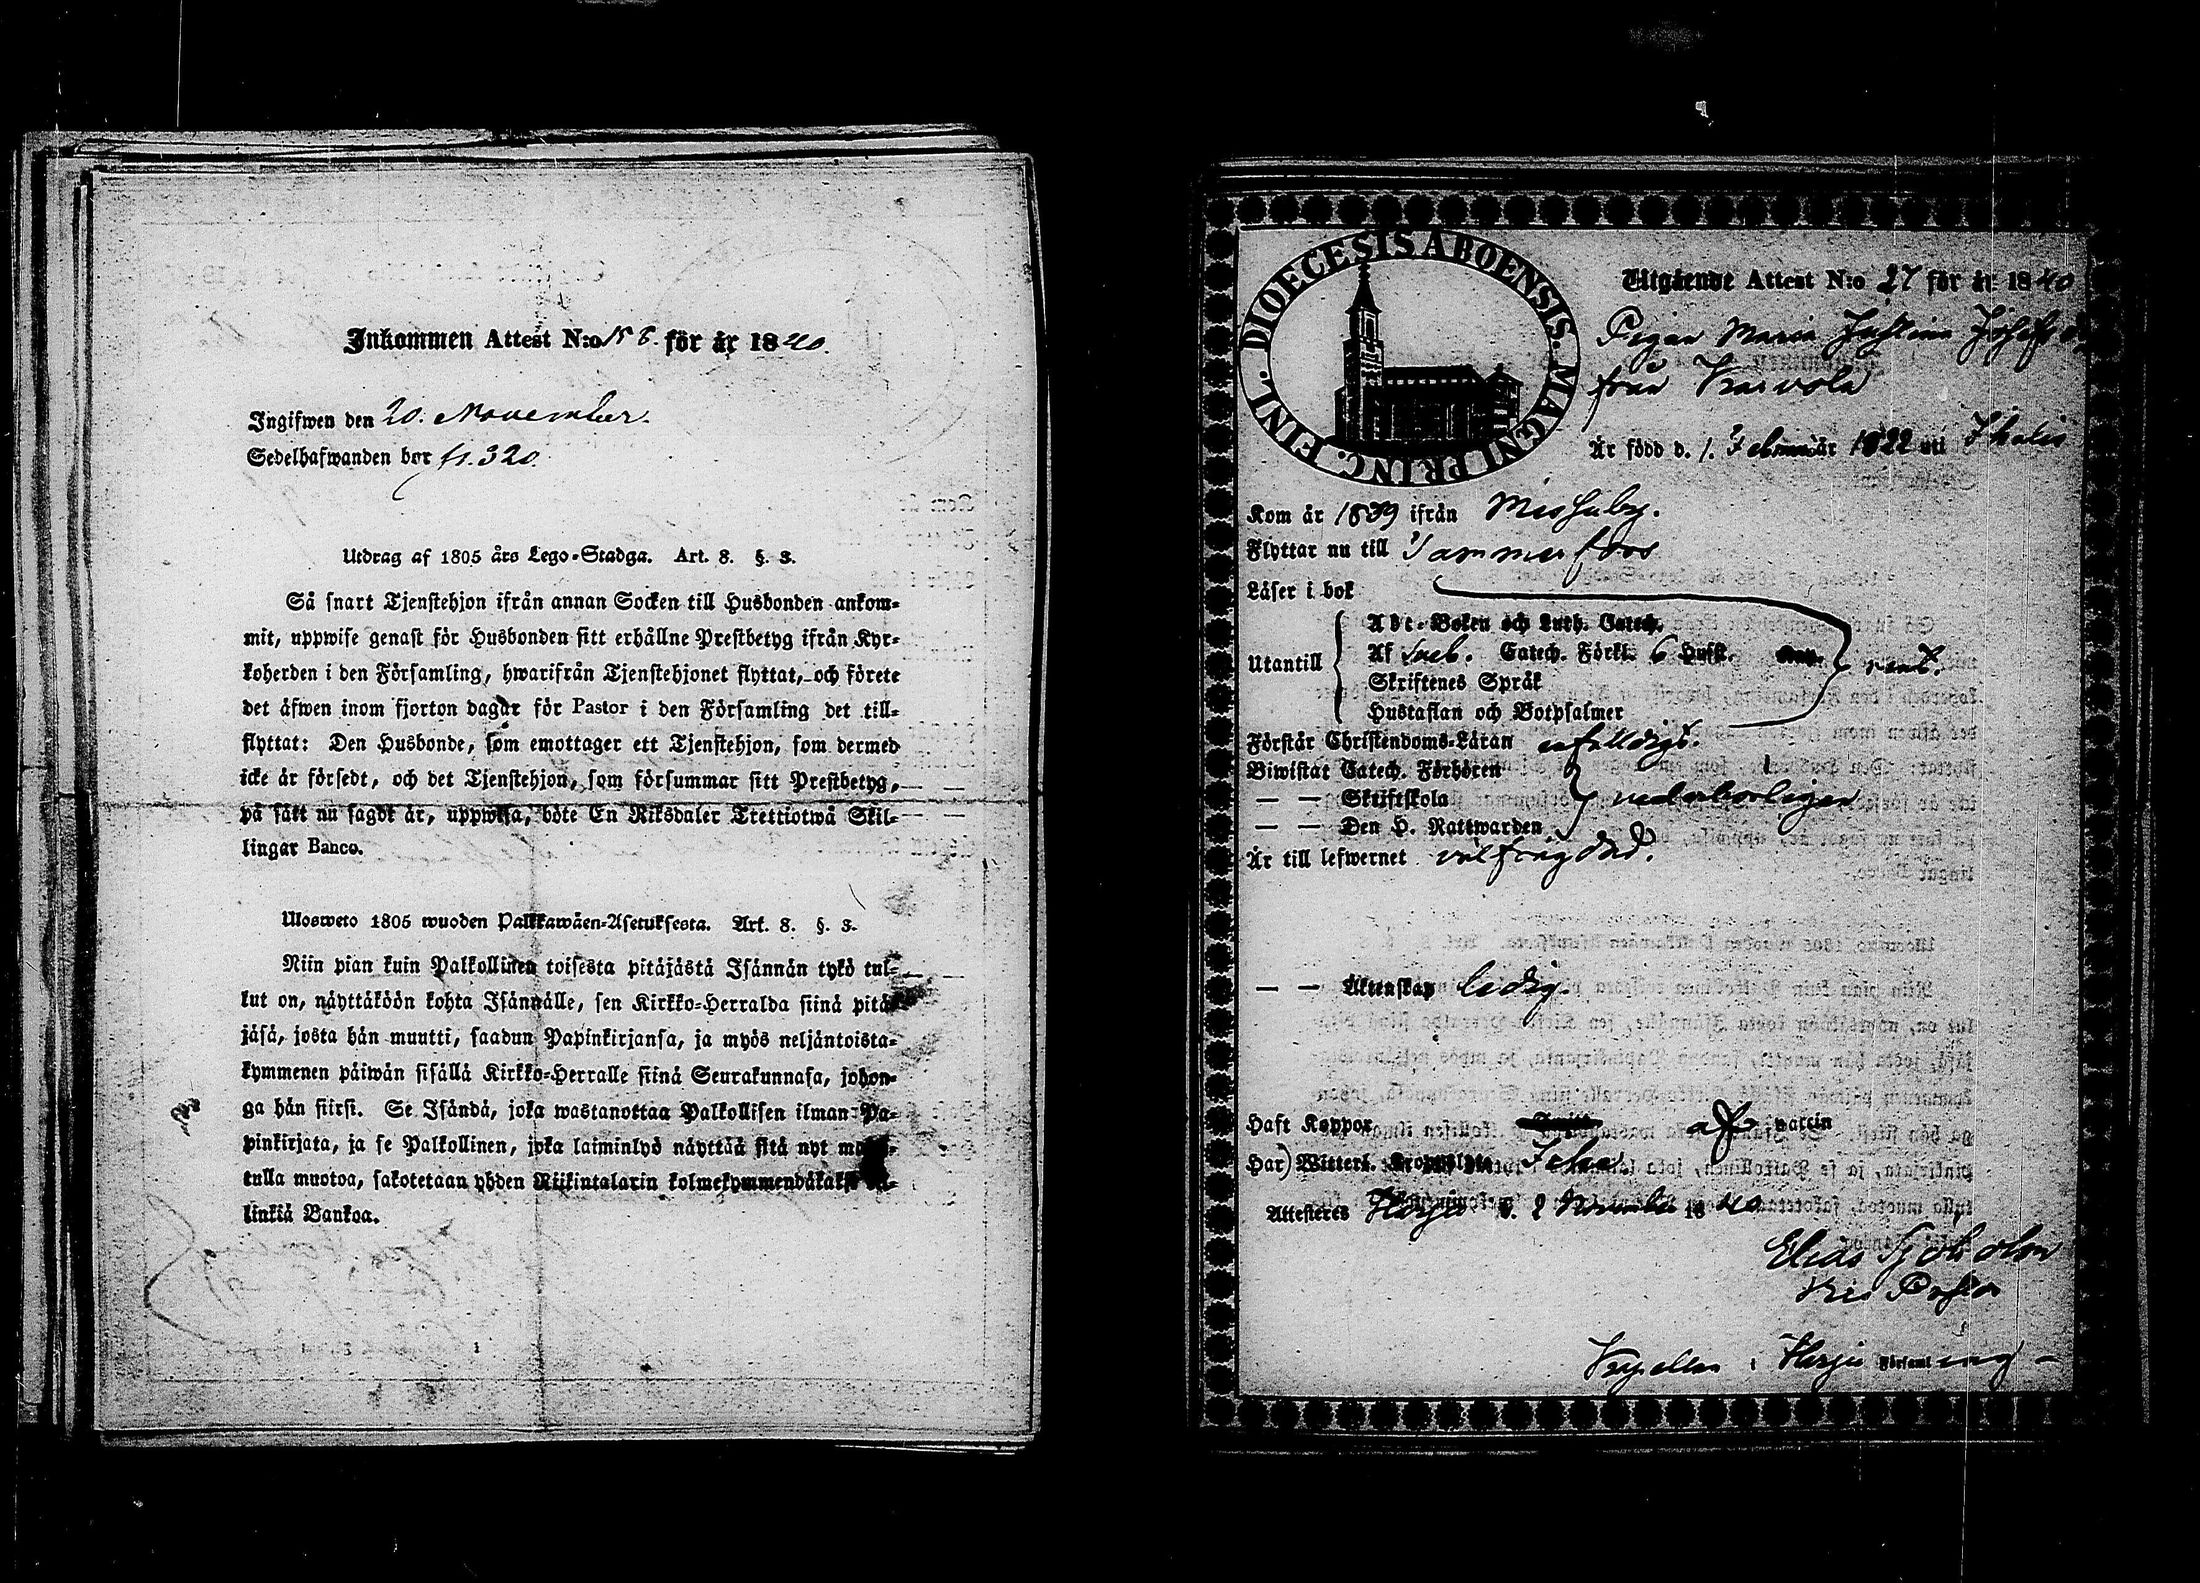 Inkommen Attest N:o 156. för år 1840.
Ingifwen den 20. November.
Sedelhafwanden bor fr. 320.
Utdrag af 1805 års Lego-Stadga. Art. 8. §. 3.
Så snart Tjenstehjon ifrån annan Socken till Husbonden ankom-
mit, uppwise genast för Husbonden sitt erhållne Prestbetyg ifrån Kyr-
koherden i den Församling, hwarifrån Tjenstehjonet flyttat, och förete
det äfwen inom fjorton dagar för Pastor i den Församling det till-
flyttat: Den Husbonde, som emottager ett Tjenstehjon, som dermed
icke är försedt, och det Tjenstehjon, som försummar sitt Prestbetyg,
på sätt nu sagdt är, uppwisa, böte En Riksdaler Trettiotwå Skil-
lingar Banco.
Ulosweto 1805 wuoden Palkkawäen-Asetuksesta. Art. 8. §. 3.
Niin pian kuin Palkollinen toisesta pitäjästä Isännän tykö tul-
lut on, näyttäköön kohta Isännälle, sen Kirkko-Herralda siinä pitä
jäsä, josta hän muutti, saadun Papinkirjansa, ja myös neljäntoista-
kymmenen päiwän sisällä Kirkko-Herralle siinä Seurakunnasa, johon-
ga hän siirst. Se Isändä, joka wastanottaa Palkollisen ilman Pa-
pinkirjata, ja se Palkollinen, joka laiminlyö näyttää sitä nyt
tulla muotoa, sakotetaan yhden Riikintalarin kolmekymmendäkaksi
linkiä Bankoa.
DIOECESIS ABOENSIS. MAGNI PRINC. FINL.
Utgående Attest N:o 27 för år 1840
Pigan Maria Justina
från Karvola
Är född d. 1. Februar år 1822 uti Ikalis
Kom år 1839 ifrån
Flyttar nu till Tammerfors
Läser i bok
Abc-Boken och Luth. Catech.
Utantill Af Sveb. Catech. Förkl. 6 Hufst. rent.
Skriftenes Språk
Hustaflan och Botpsalmer
Förstår Christendoms-Läran enfalldigt.
Biwistat Catech. Förhören
— — Skriftskola vederborligen
— — Den H. Nattwarden
Är till lefwernet välfrägdad.
— — Äktenskap ledig.
Haft Koppor af vaccin
Har) Witterl.
Attesteras Harju d. 2 November 1840
Elias
Kapellan i Harju Församling